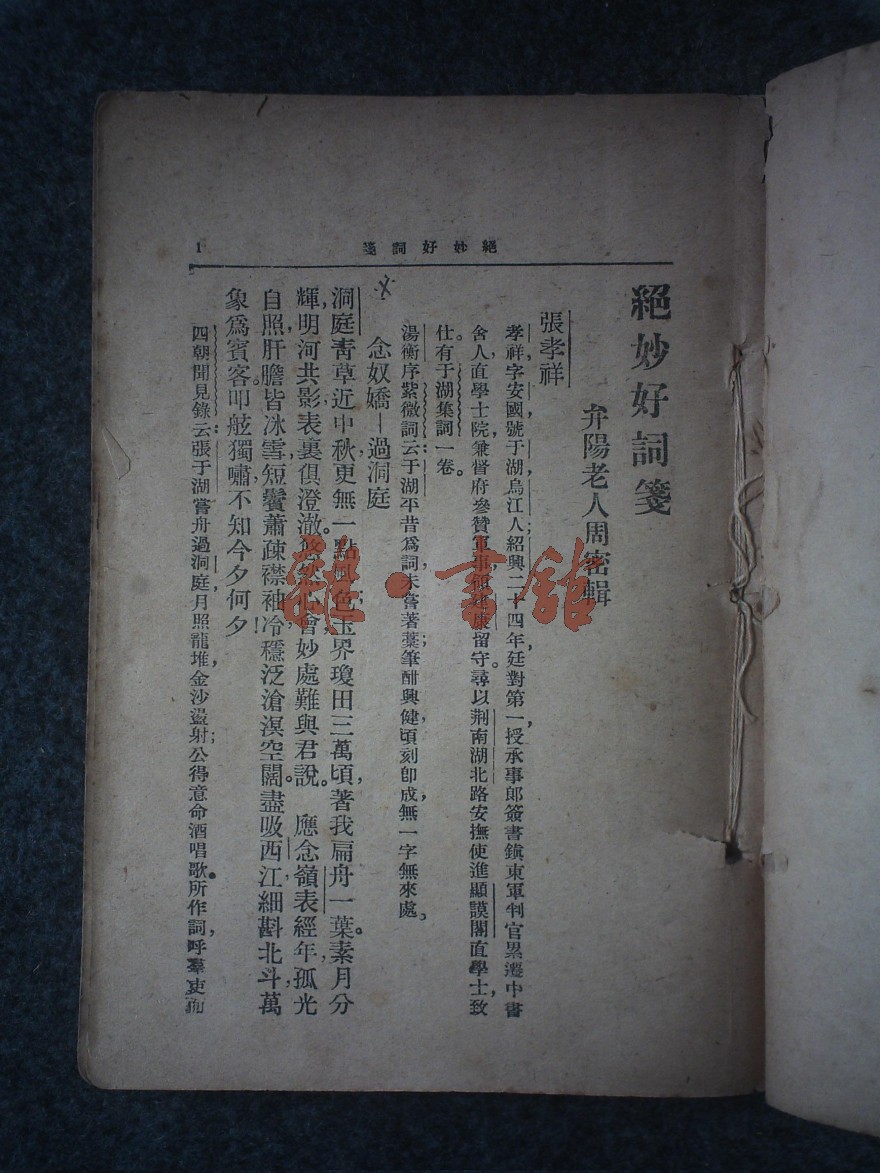 絕妙好詞箋
1
絕妙好詞箋
弁陽老人周密輯
張孝祥
孝祥,字安國,號于湖,烏江人;紹興二十四年廷對第一,授承事郎,簽書鎮東軍判官累遷中書
舍人,直學士院兼督府參贊軍事領建康留守。尋以荊南湖北路安撫使進顯謨閣直學士,致
仕。有于湖集詞一卷。
湯衡序紫微詞云:于湖平昔爲詞,未嘗著藁;筆酣興健,頃刻卽成,無一字無來處,
念奴嬌—過洞庭
洞庭青草近中秋,更無一點風色;玉界瓊田三萬頃,著我扁舟一葉。素月分
輝,明河共影,表裏俱澄澈。悠然心會,妙處難與君說。 應念嶺表經年,孤光
自照,肝膽皆冰雪。短鬢蕭疎襟袖冷,穩泛滄溟空闊。盡吸西江,細斟北斗,萬
象爲賓客。叩舷獨嘯,不知今夕何夕!
四朝聞見錄云:張于湖嘗舟過洞庭,月照龍堆,金沙盪射;公得意命酒,唱歌所作詞,呼羣吏而
雜·書館